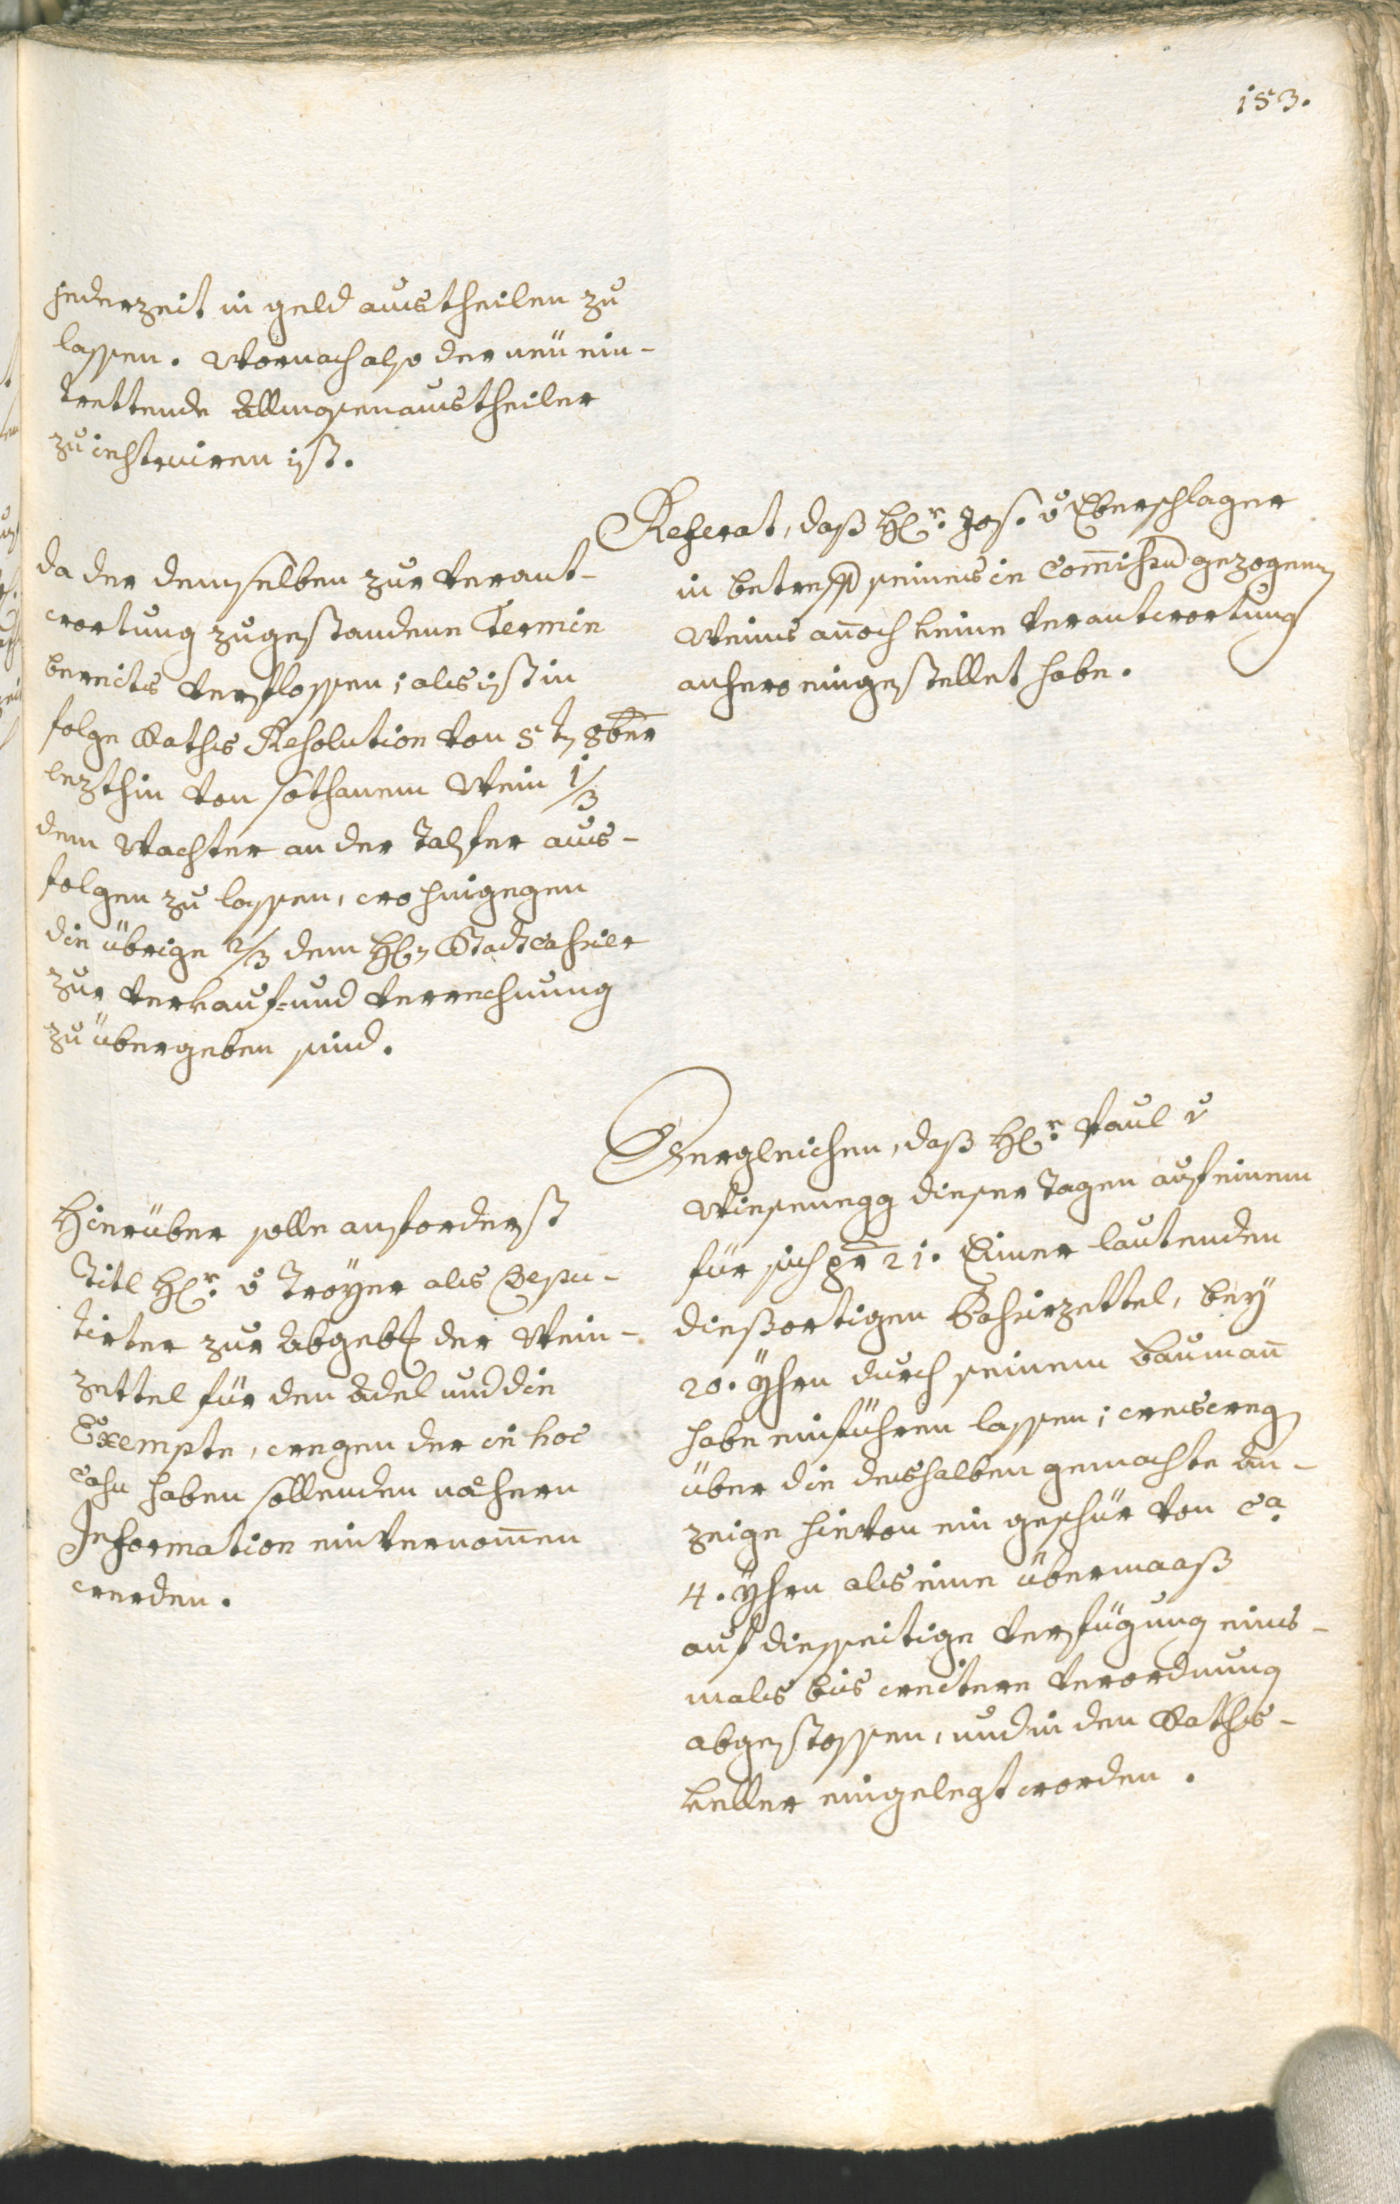 153.
jederzeit in geld austheilen zu
lassen. Wornach also der neü ein-
trettende Allmosenaustheiler
zu instruiren ist.
Referat, daß H(err)r. Jos. v Eberschlager
in betreff seines in Commissu(m) gezogenen
Weins an̄och keine verantwortung
anhero eingestellet habe.
da der demselben zur verant-
wortung zugestandene Termin
bereits verflossen; als ist in
folge Raths Resolution von 5t(en) 8ber
lezthin von sothanem Wein 1/3
dem Wachter an der Talfer aus-
folgen zu lassen, wo hingegen
die übrige 2/3 dem H(err)n Stadtcassier
zur verkauf- und verrechnung
zu übergeben sind.
Dergleichen, daß H(err)r. Paul v
Wiesenegg dieser Tagen auf einem
für sich p(e)r 21. Eimer lautenden
dießortigen Passirzettel, beÿ
20. Ÿhrn durch seinem bauman̄
habe einführen lassen; weswegen
über die deshalben gemachte An-
zeige hievon ein geschür von ca.
4. Ÿhrn als eine übermaaß
auf diesseitige verfügung eins-
mals bis weitere verordnung
abgestossen, und in den Raths-
keller eingelegt worden.
Hierüber solle anforderst
Titl H(err)r. v Troÿer als Depu-
tirter zur Abgeb(ung) der Wein-
zettel für den Adel und die
Exempte, wegen der in hoc
casu haben sollenden näheren
Information einvernom̄en
werden.